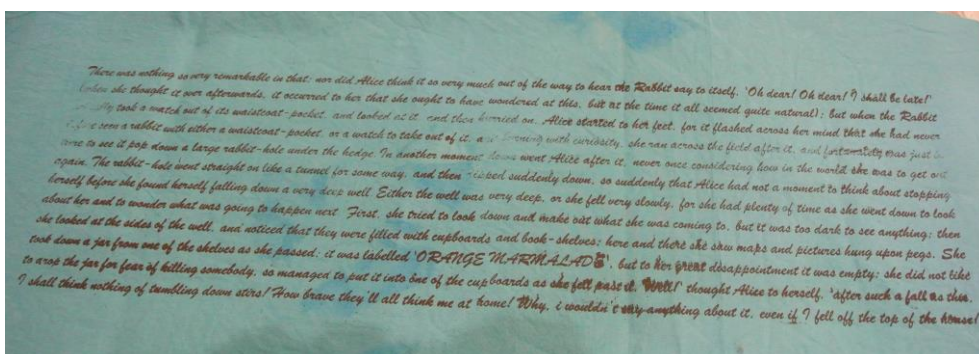 There was nothing so very remarkable in that; nor did Alice think it so very much out of the way to hear the Rabbit say to itself, 'Oh dear! Oh dear! I shall be late!'
(when she thought it over afterwards, it occurred to her that she ought to have wondered at this, but at the time it all seemed quite natural); but when the Rabbit
took a watch out of its waistcoat-pocket, and looked at it, and then hurried on, Alice started to her feet, for it flashed across her mind that she had never
seen a rabbit with either a waistcoat-pocket, or a watch to take out of it, burning with curiosity, she ran across the field after it, and fortunately was just
time to see it pop down a large rabbit-hole under the hedge. In another moment down went Alice after it, never once considering how in the world she was to get out
again. The rabbit-hole went straight on like a tunnel for some way, and then dipped suddenly down, so suddenly that Alice had not a moment to think about stopping
herself before she found herself falling down a very deep well. Either the well was very deep, or she fell very slowly, for she had plenty of time as she went down to look
about her and to wonder what was going to happen next. First, she tried to look down and make out what she was coming to, but it was too dark to see anything; then
she looked at the sides of the well, and noticed that they were filled with cupboards and book-shelves; here and there she saw maps and pictures hung upon pegs. She
took down a jar from one of the shelves as she passed; it was labelled 'ORANGE MARMALADE', but to her great disappointment it was empty: she did not like
to drop the jar for fear of killing somebody, so managed to put it into one of the cupboards as she fell past it. 'Well!' thought Alice to herself, 'after such a fall as this,
I shall think nothing of tumbling down stirs! How brave they'll all think me at home! Why, i wouldn't say anything about it, even if I fell off the top of the house!